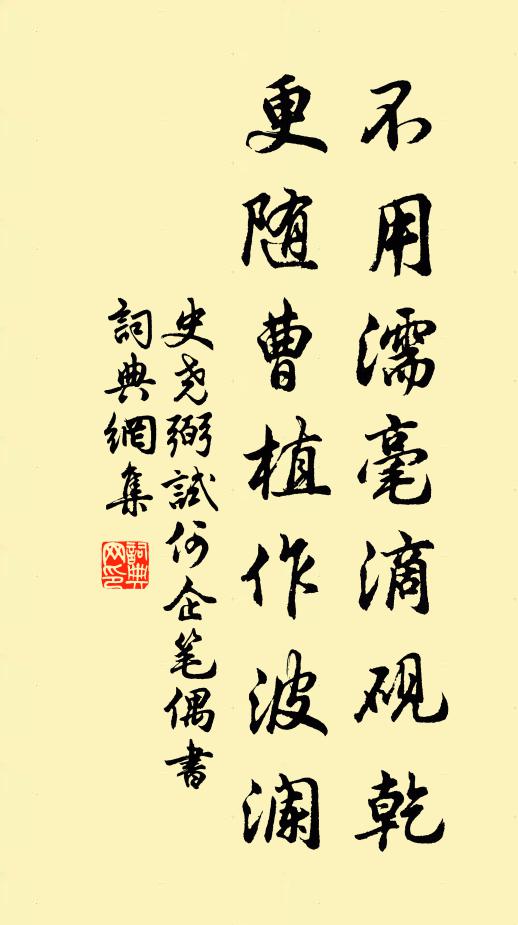 不用濡毫滴砚乾
更随曹植作波澜
史尧弼試何企笔偶書
詞典網集
詞典网印